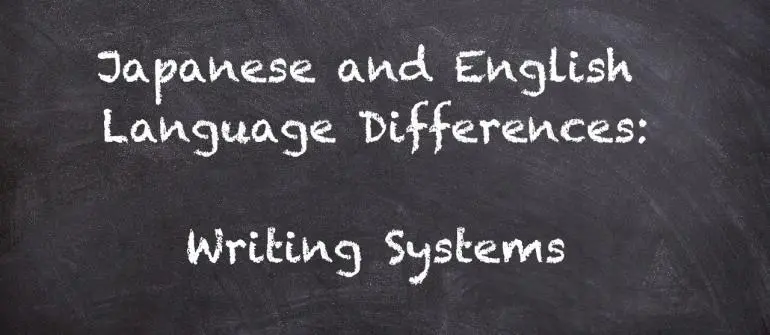 Japanese and English
Language Differences:
Writing Systems